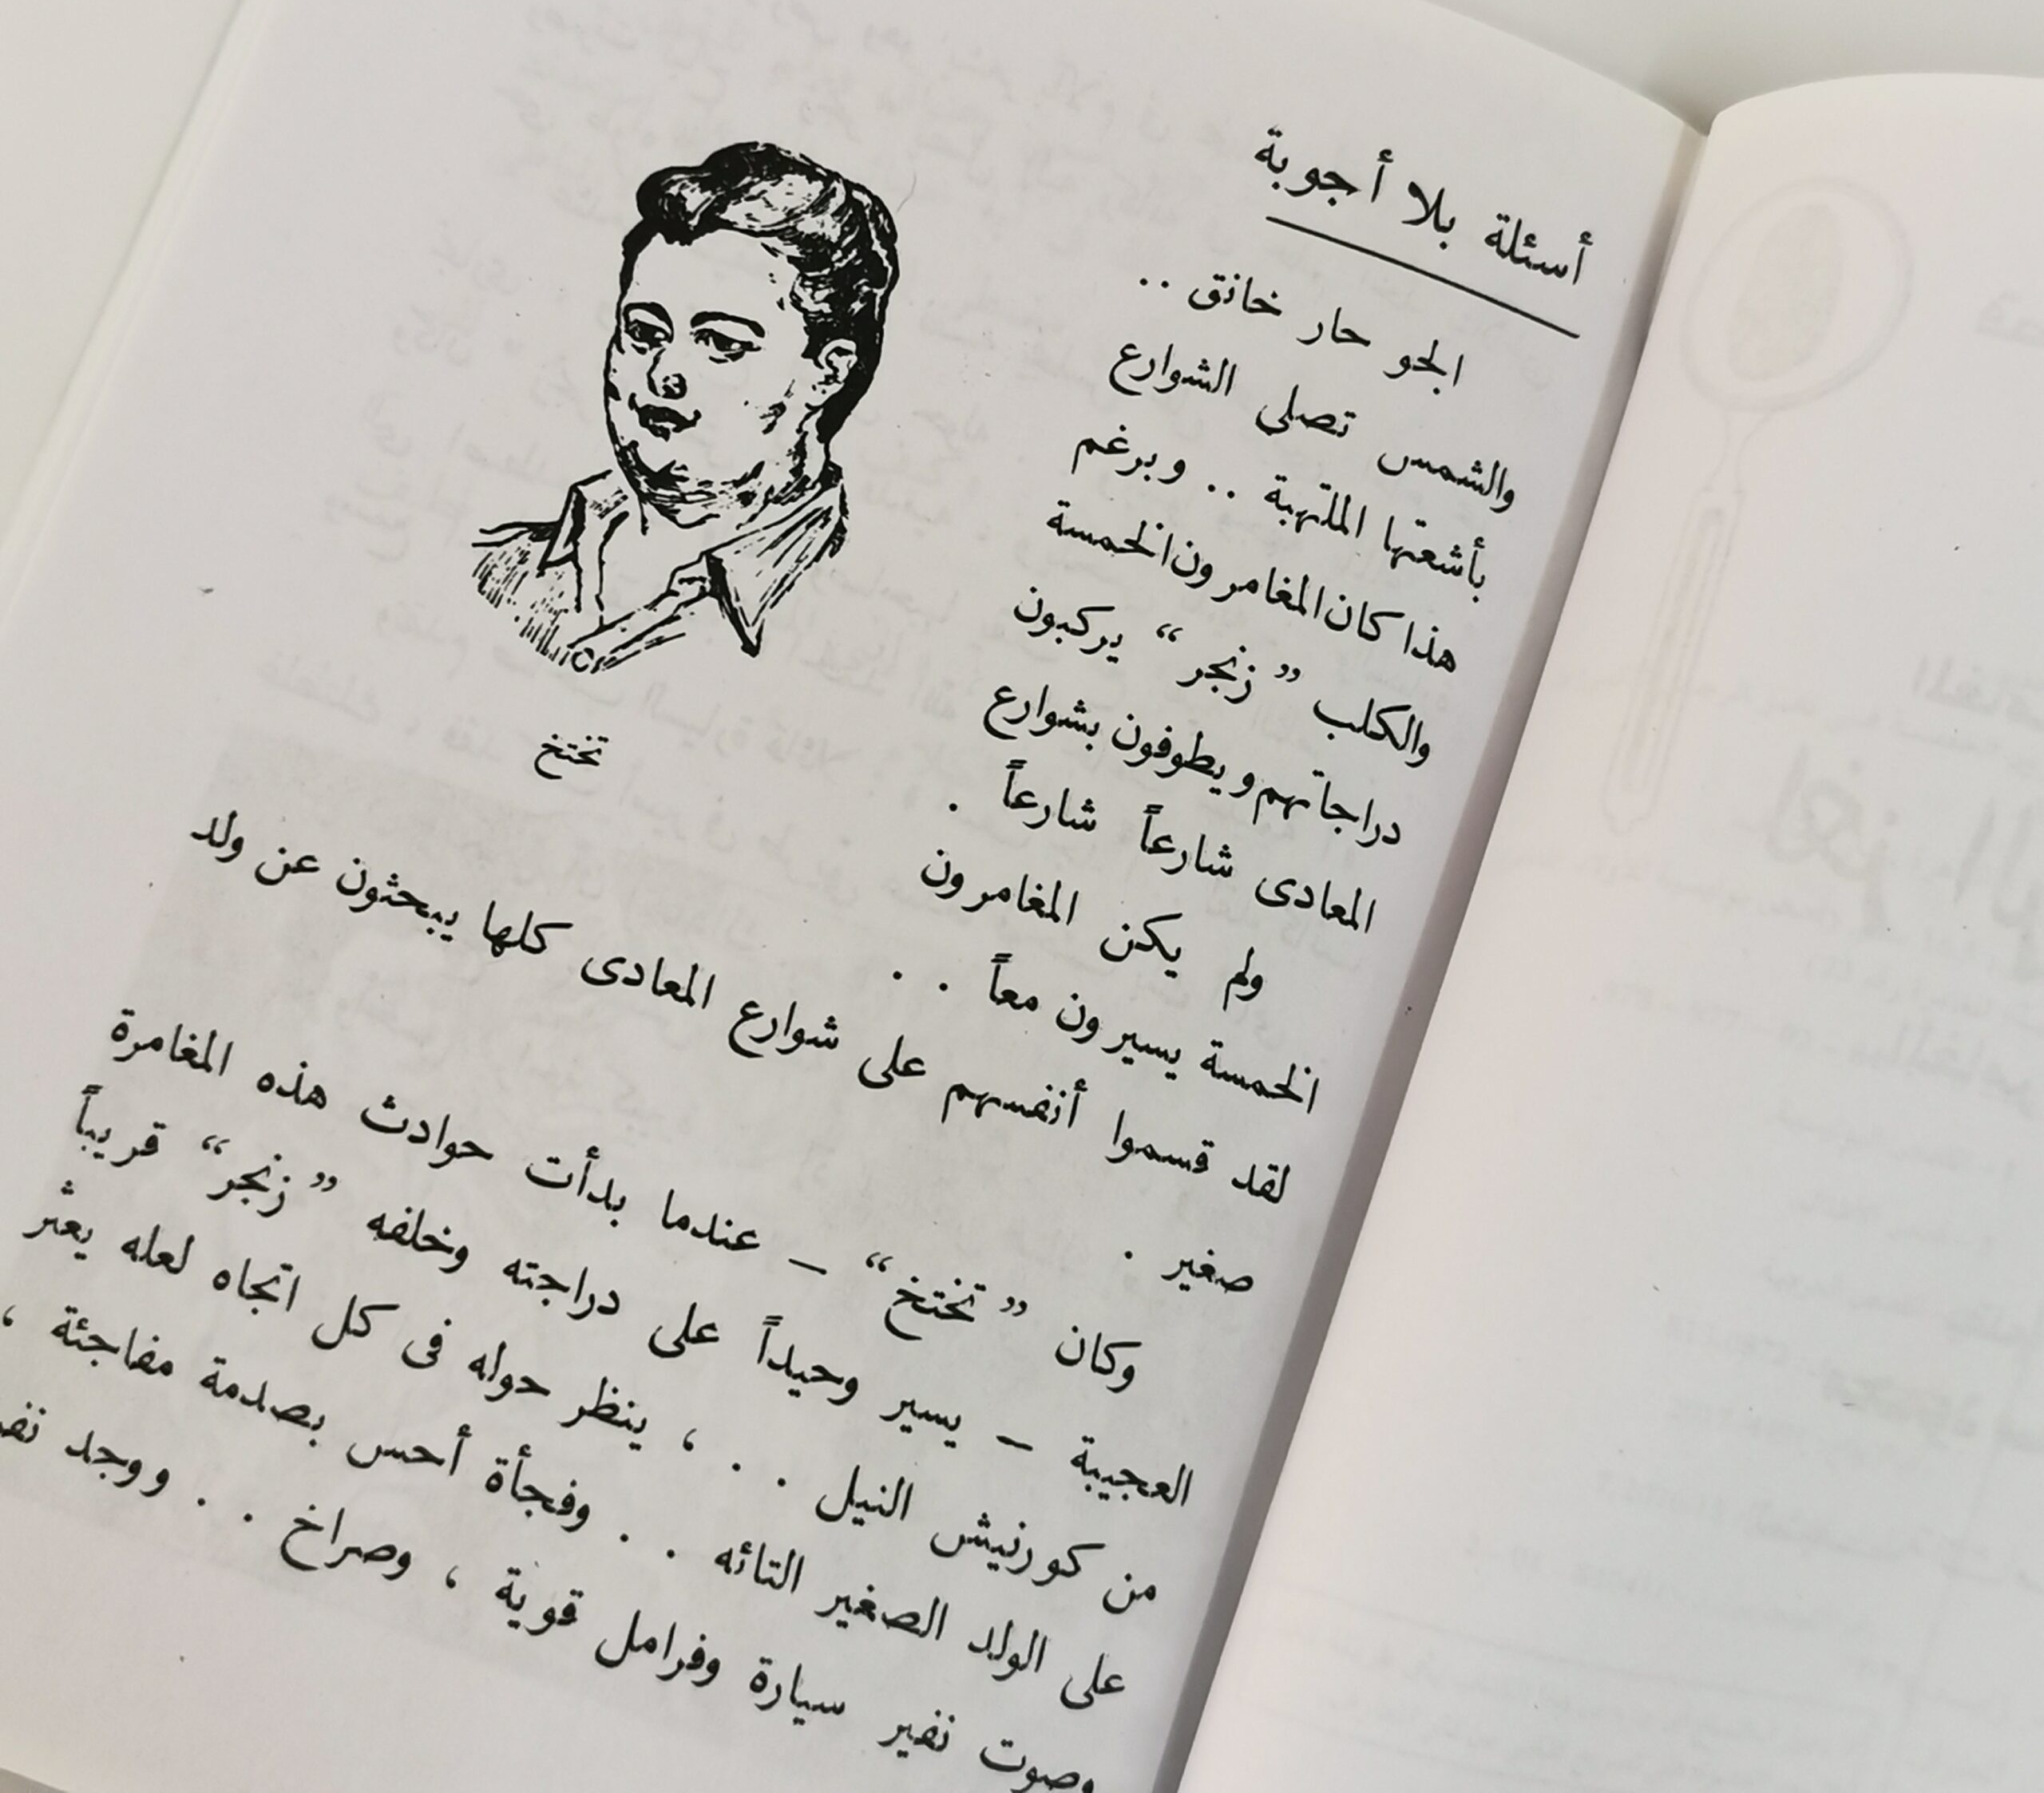 أسئلة بلا أجوبة
الجو حار خانق . .
والشمس تصلى الشوارع
بأشعتها الملتهبة . . وبرغم
هذا كان المغامرون الخمسة
والكلب ” زنجر “ يركبون
دراجاتهم ويطوفون بشوارع
المعادى شارعاً شارعاً .
تختخ
ولم يكن المغامرون
الخمسة يسيرون معاً . .
لقد قسموا أنفسهم على شوارع المعادى كلها يبحثون عن ولد
صغير .
وكان ” تختخ “ – عندما بدأت حوادث هذه المغامرة
العجيبة – يسير وحيداً على دراجته وخلفه ” زنجر “ قريباً
من كورنيش النيل . . ، ينظر حوله فى كل اتجاه لعله يعثر
على الولد الصغير التائه . . وفجأة أحس بصدمة مفاجئة ،
وصوت نفير سيارة وفرامل قوية ، وصراخ . . ووجد